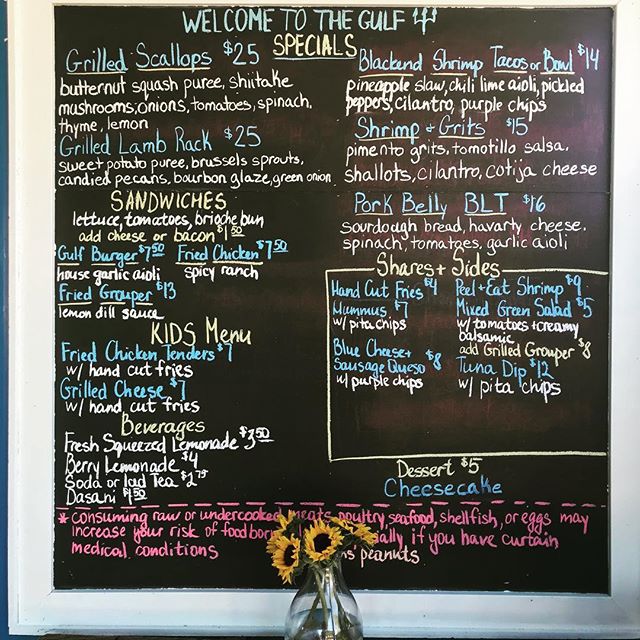 WELCOME TO THE GULF
SPECIALS
Grilled Scallops $25
butternut squash puree, shiitake
mushrooms, onions, tomatoes, spinach,
thyme, lemon
Grilled Lamb Rack $25
sweet potato puree, brussels sprouts,
candied pecans, bourbon glaze, green onion
SANDWICHES
lettuce, tomatoes, brioche bun
add cheese or bacon $1.50
Gulf Burger $7.50 Fried Chicken $7.50
house garlic aioli spicy ranch
Fried Grouper $13
lemon dill sauce
KIDS Menu
Fried Chicken tenders $7
w/ hand cut fries
Grilled Cheese $7
w/ hand cut fries
Beverages
Fresh Squeezed Lemonade $3.50
Berry Lemonade $4
Soda or Iced Tea $2.75
Dasani $1.50
Blackend Shrimp Tacos or Bowl $14
pineapple slaw, chili lime aioli, pickled
peppers, cilantro, purple chips
Shrimp + Grits $15
pimento grits, tomotillo salsa,
shallots, cilantro, cotija cheese
Pork Belly BLT $16
sourdough bread, havarty cheese,
spinach, tomatoes, garlic aioli
Shares + Sides
Hand Cut Fries $4
Mummus $7
w/ pita chips
Blue Cheese +
Sausage Queso $8
w/ purple chips
Peel + Eat Shrimp $9
Mixed Green Salad $5
w/ tomatoes + creamy
balsamic
add Grilled Grouper $8
Tuna Dip $12
w/ pita chips
Dessert $5
Cheesecake
* consuming raw or undercooked meats, poultry, seafood, shellfish, or eggs may
increase your risk of food if you have curtain
medical conditions peanuts